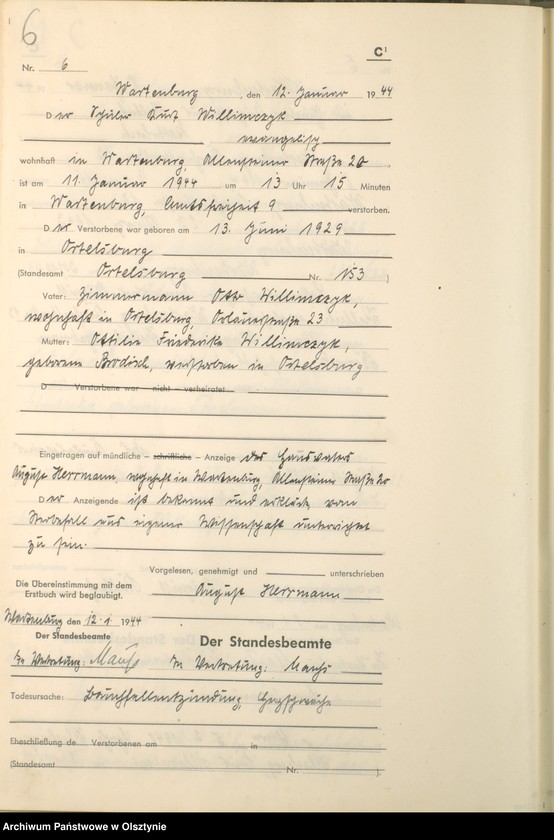 6
C¹
Nr. 6
Wartenburg, den 12. Januar 1944
Der Schüler Kurt Willimczyk
evangelisch
wohnhaft in Wartenburg, Allensteiner Straße 20
ist am 11. Januar 1944 um 13 Uhr 15 Minuten
in Wartenburg, Amtsfreiheit 9 verstorben.
Der Verstorbene war geboren am 13. Juni 1929
in Ortelsburg
(Standesamt Ortelsburg Nr. 153)
Vater: Zimmermann Otto Willimczyk,
wohnhaft in Ortelsburg, 23
Mutter: Ottilie Friederike Willimczyk,
geborene Brodisch, verstorben in Ortelsburg
D Verstorbene war nicht verheiratet
Eingetragen auf mündliche – schriftliche – Anzeige des Hausvaters
August Herrmann, wohnhaft in Wartenburg, Allensteiner Straße 20
Der Anzeigende ist bekannt und erklärte, vom
Sterbefall aus eigener Wissenschaft unterrichtet
zu sein.
Vorgelesen, genehmigt und unterschrieben
Die Übereinstimmung mit dem
Erstbuch wird beglaubigt.
August Herrmann
Wartenburg den 12.1.1944
Der Standesbeamte
Der Standesbeamte
In Vertretung:
In Vertretung:
Todesursache: Bauchfellentzündung,
Eheschließung de Verstorbenen am in
(Standesamt Nr. )
Archiwum Państwowe w Olsztynie